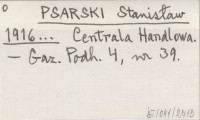 o
PSARSKI Stanisław
1916... Centrala Handlowa.
— Gaz. Podh. 4, nr 39.